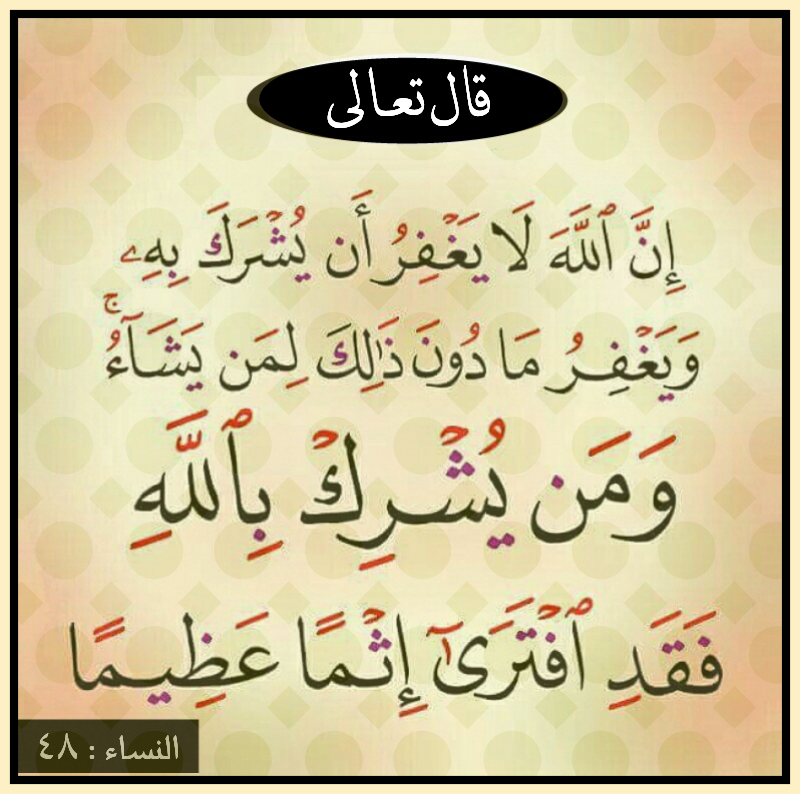 قال تعالى
إِنَّ ٱللَّهَ لَا يَغْفِرُ أَن يُشْرَكَ بِهِۦ
وَيَغْفِرُ مَا دُونَ ذَٰلِكَ لِمَن يَشَآءُ ۚ
وَمَن يُشْرِكْ بِٱللَّهِ
فَقَدِ ٱفْتَرَىٰٓ إِثْمًا عَظِيمًا
النساء : ٤٨